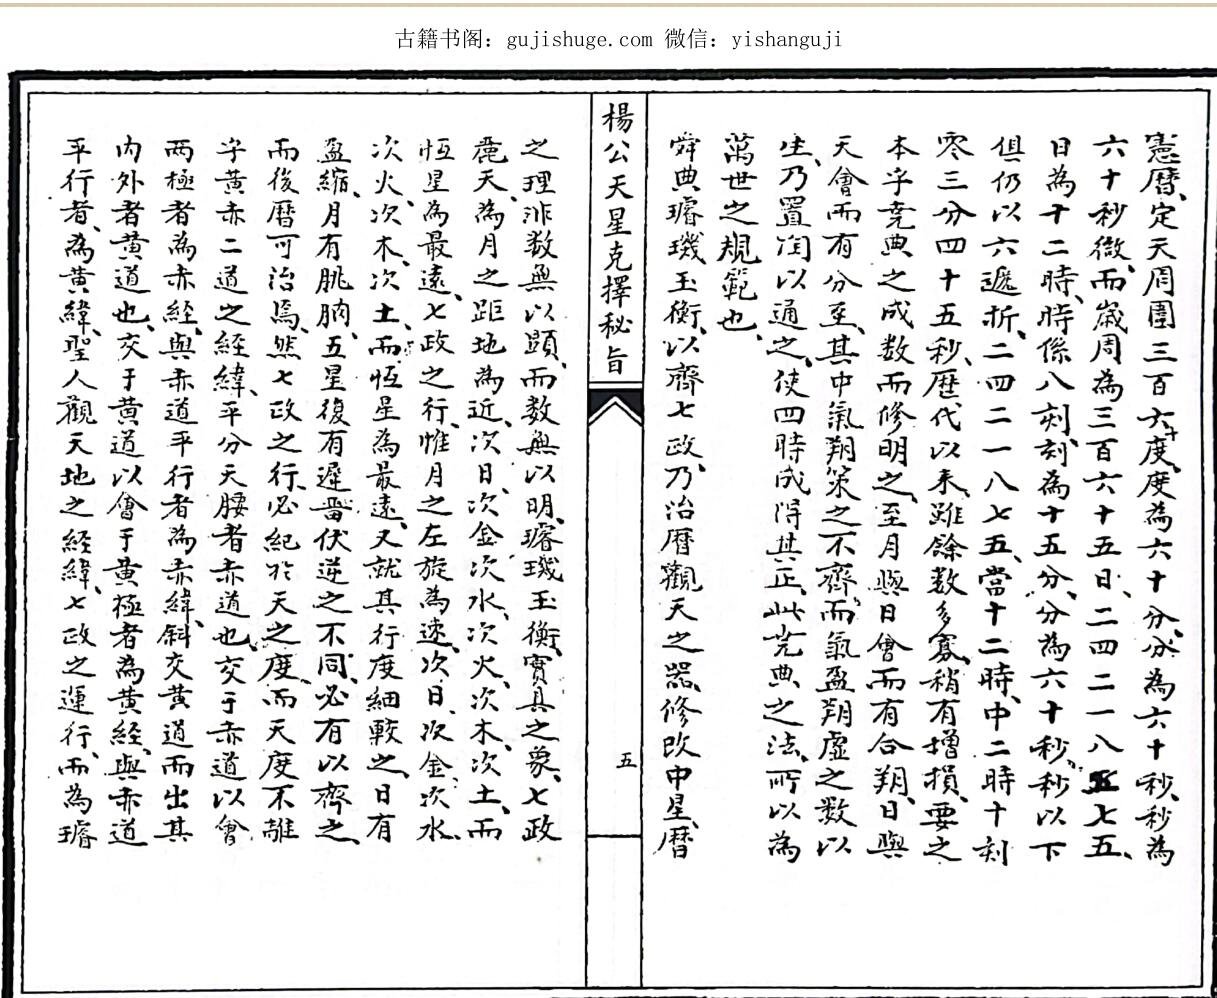 古籍书阁：gujishuge.com 微信：yishanguji
憲曆、定天周圍三百六十度、度為六十分、分為六十秒、秒為
六十秒微、而歲周為三百六十五日、二四二一八五七五、
日為十二時、時係八刻、刻為十五分、分為六十秒、秒以下
俱仍以六遞折、二四二一八七五、當十二時、中二時十刻
零三分四十五秒、歷代以來、雖餘數多寡、稍有增損、要之
本乎堯典之成數而修明之、至月與日會而有合朔、日與
天會而有分至、其中氣朔策之不齊、而氣盈朔虛之數以
生、乃置閏以通之、使四時成得其正、此堯典之法、所以為
萬世之規範也、
舜典璿璣玉衡、以齊七政、乃治曆觀天之器、修改中星、曆
楊公天星克擇秘旨
五
之理非数無以顕、而数無以明、璿璣玉衡、實具之象、七政
麗天、為月之距地為近、次日、次金次水、次火、次木、次土、而
恆星為最遠、七政之行、惟月之左旋為速、次日、次金次水、
次火、次木、次土、而恆星為最遠、又就其行度細較之、日有
盈縮、月有朓朒、五星復有遲留伏逆之不同、必有以齊之、
而後曆可治焉、然七政之行、必紀於天之度、而天度不離
乎黃赤二道之経緯、平分天腰者赤道也、交于赤道以會
两極者為赤経、與赤道平行者為赤緯、斜交黃道而出其
内外者黃道也、交于黃道以會于黃極者為黃経、與赤道
平行者、為黃緯、聖人觀天地之経緯、七政之運行、而為璿